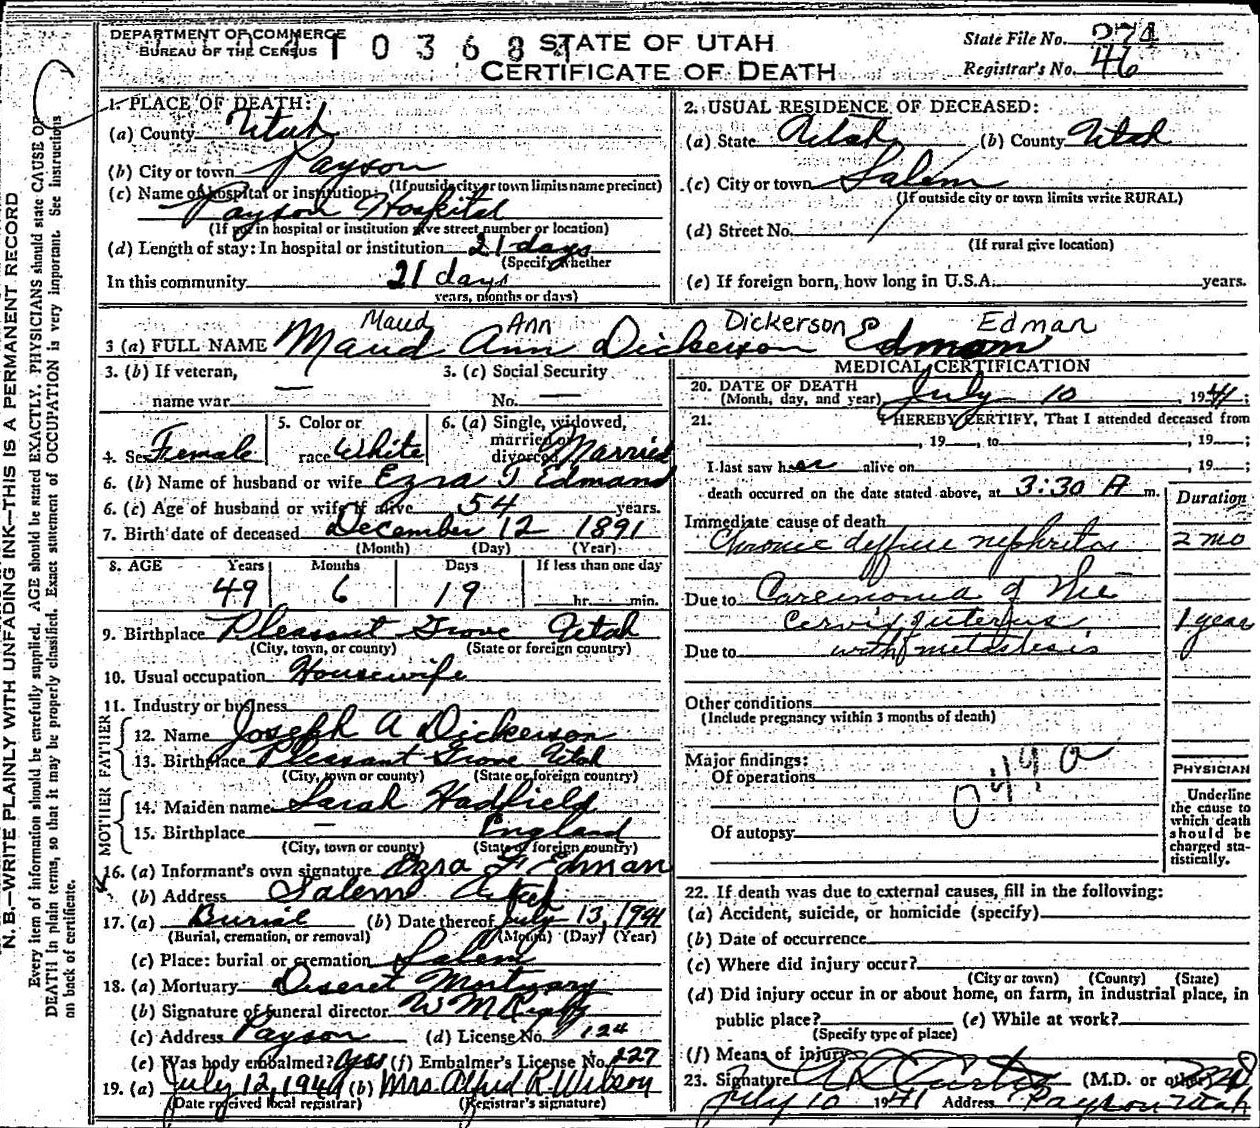 DEPARTMENT OF COMMERCE
BUREAU OF THE CENSUS
STATE OF UTAH
CERTIFICATE OF DEATH
State File No. 274
Registrar's No. 46
1. PLACE OF DEATH:
(a) County Utah
(b) City or town Payson
(If outside city or town limits name precinct)
(c) Name of hospital or institution:
Payson Hospital
(If not in hospital or institution give street number or location)
(d) Length of stay: In hospital or institution 21 days
(Specify whether
In this community 21 days
years, months or days)
2. USUAL RESIDENCE OF DECEASED:
(a) State Utah (b) County Utah
(c) City or town Salem
(If outside city or town limits write RURAL)
(d) Street No.
(If rural give location)
(e) If foreign born, how long in U.S.A. years.
Maud Ann Dickerson Edman
3 (a) FULL NAME Maud Ann Dickerson Edman
3. (b) If veteran, name war —
3. (c) Social Security No. —
4. Sex Female
5. Color or race White
6. (a) Single, widowed, married or divorced Married
6. (b) Name of husband or wife Ezra T Edmand
6. (c) Age of husband or wife if alive 54 years.
7. Birth date of deceased December 12 1891
(Month) (Day) (Year)
8. AGE Years Months Days If less than one day
49 6 19 hr. min.
9. Birthplace Pleasant Grove Utah
(City, town, or county) (State or foreign country)
10. Usual occupation Housewife
11. Industry or business
FATHER
12. Name Joseph A Dickerson
13. Birthplace Pleasant Grove Utah
(City, town or county) (State or foreign country)
MOTHER
14. Maiden name Sarah Hadfield
15. Birthplace — England
(City, town or county) (State or foreign country)
16. (a) Informant's own signature Ezra F Edman
(b) Address Salem Utah
17. (a) Burial (b) Date thereof July 13, 1941
(Burial, cremation, or removal) (Month) (Day) (Year)
(c) Place: burial or cremation Salem
18. (a) Mortuary Deseret Mortuary
(b) Signature of funeral director W M
(c) Address Payson (d) License No. 124
(e) Was body embalmed? yes (f) Embalmer's License No. 227
19. (a) July 12, 194 (b) Mrs Alfred R Wilson
(Date received local registrar) (Registrar's signature)
MEDICAL CERTIFICATION
20. DATE OF DEATH
(Month, day, and year) July 10, 1941;
21. I HEREBY CERTIFY, That I attended deceased from
, 19 , to , 19 ;
I last saw her alive on , 19 ;
death occurred on the date stated above, at 3:30 A m.
Duration
Immediate cause of death
Chronic diffuse nephritis 2 mo
Due to Carcinoma of the
Cervix uterus 1 year
Due to with metastesis
Other conditions
(Include pregnancy within 3 months of death)
Major findings:
Of operations
Of autopsy
PHYSICIAN
Underline the cause to which death should be charged statistically.
22. If death was due to external causes, fill in the following:
(a) Accident, suicide, or homicide (specify)
(b) Date of occurrence
(c) Where did injury occur?
(City or town) (County) (State)
(d) Did injury occur in or about home, on farm, in industrial place, in
public place? (e) While at work?
(Specify type of place)
(f) Means of injury
23. Signature Curtis (M.D. or other)
July 10 1941 Address Payson Utah
N. B.—WRITE PLAINLY WITH UNFADING INK—THIS IS A PERMANENT RECORD
Every item of information should be carefully supplied. AGE should be stated EXACTLY. PHYSICIANS should state CAUSE OF
DEATH in plain terms, so that it may be properly classified. Exact statement of OCCUPATION is very important. See instructions
on back of certificate.